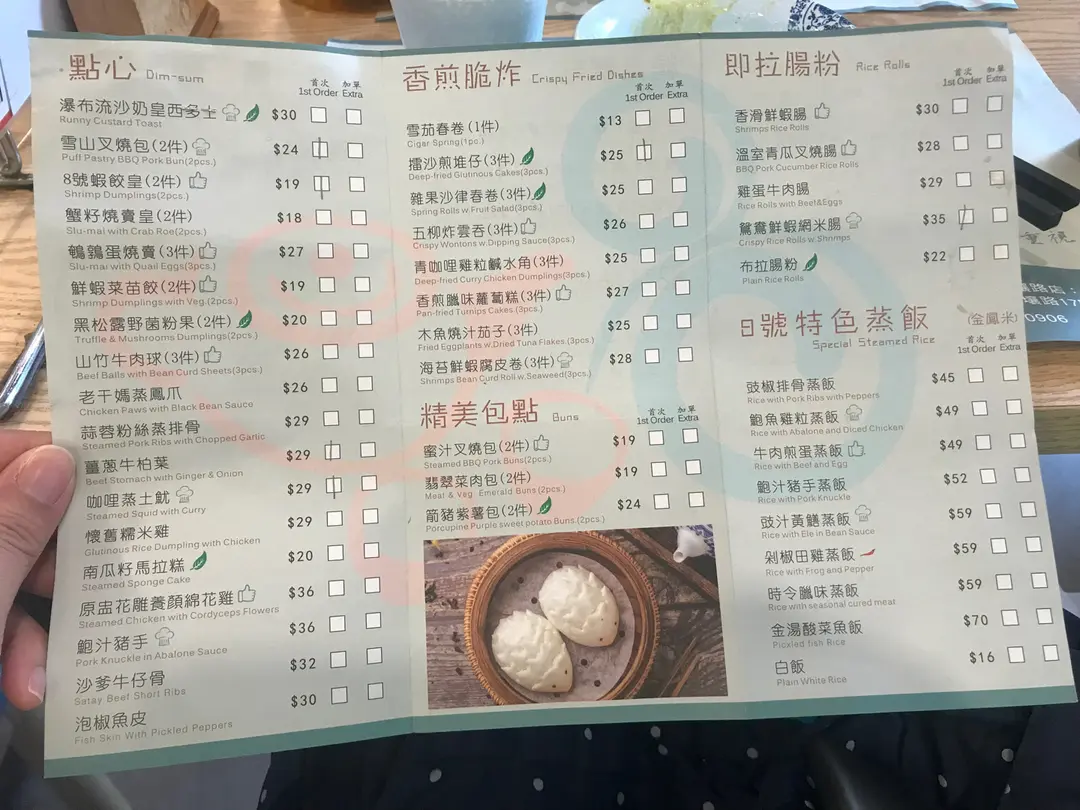 點心 Dim-sum
首次 加單
1st Order Extra
瀑布流沙奶皇西多士 $30
Runny Custard Toast
雪山叉燒包(2件) $24
Puff Pastry BBQ Pork Bun(2pcs.)
8號蝦餃皇(2件) $19
Shrimp Dumplings(2pcs.)
蟹籽燒賣皇(2件) $18
Siu-mai with Crab Roe(2pcs.)
鵪鶉蛋燒賣(3件) $27
Siu-mai with Quail Eggs(3pcs.)
鮮蝦菜苗餃(2件) $19
Shrimp Dumplings with Veg.(2pcs.)
黑松露野菌粉果(2件) $20
Truffle & Mushrooms Dumplings(2pcs.)
山竹牛肉球(3件) $26
Beef Balls with Bean Curd Sheets(3pcs.)
老干媽蒸鳳爪 $26
Chicken Paws with Black Bean Sauce
蒜蓉粉絲蒸排骨 $29
Steamed Pork Ribs with Chopped Garlic
薑蔥牛柏葉 $29
Beef Stomach with Ginger & Onion
咖哩蒸土魷 $29
Steamed Squid with Curry
懷舊糯米雞 $20
Glutinous Rice Dumpling with Chicken
南瓜籽馬拉糕 $36
Steamed Sponge Cake
原盅花雕養顏綿花雞 $36
Steamed Chicken with Cordyceps Flowers
鮑汁豬手 $32
Pork Knuckle in Abalone Sauce
沙爹牛仔骨 $30
Satay Beef Short Ribs
泡椒魚皮
Fish Skin With Pickled Peppers
香煎脆炸 Crispy Fried Dishes
首次 加單
1st Order Extra
雪茄春卷(1件) $13
Cigar Spring(1pc.)
擂沙煎堆仔(3件) $25
Deep-fried Glutinous Cakes(3pcs.)
雜果沙律春卷(3件) $25
Spring Rolls w.Fruit Salad(3pcs.)
五柳炸雲吞(3件) $26
Crispy Wontons w.Dipping Sauce(3pcs.)
青咖哩雞粒鹹水角(3件) $25
Deep-fried Curry Chicken Dumplings(3pcs.)
香煎臘味蘿蔔糕(3件) $27
Pan-fried Turnips Cakes(3pcs.)
木魚燒汁茄子(3件) $25
Fried Eggplants w.Dried Tuna Flakes.(3pcs.)
海苔鮮蝦腐皮卷(3件) $28
Shrimps Bean Curd Roll w.Seaweed(3pcs.)
精美包點 Buns
首次 加單
1st Order Extra
蜜汁叉燒包(2件) $19
Steamed BBQ Pork Buns(2pcs.)
翡翠菜肉包(2件) $19
Meat & Veg Emerald Buns(2pcs.)
箭豬紫薯包(2件) $24
Porcupine Purple sweet potato Buns.(2pcs.)
即拉腸粉 Rice Rolls
首次 加單
1st Order Extra
香滑鮮蝦腸 $30
Shrimps Rice Rolls
溫室青瓜叉燒腸 $28
BBQ Pork Cucumber Rice Rolls
雞蛋牛肉腸 $29
Rice Rolls with Beef&Eggs
鴛鴦鮮蝦網米腸 $35
Crispy Rice Rolls w.Shrimps
布拉腸粉 $22
Plain Rice Rolls
8號特色蒸飯 (金鳳米)
Special Steamed Rice
首次 加單
1st Order Extra
豉椒排骨蒸飯 $45
Rice with Pork Ribs with Peppers
鮑魚雞粒蒸飯 $49
Rice with Abalone and Diced Chicken
牛肉煎蛋蒸飯 $49
Rice with Beef and Egg
鮑汁豬手蒸飯 $52
Rice with Pork Knuckle
豉汁黃鱔蒸飯 $59
Rice with Ele in Bean Sauce
剁椒田雞蒸飯 $59
Rice with Frog and Pepper
時令臘味蒸飯 $59
Rice with seasonal cured meat
金湯酸菜魚飯 $70
Pickled fish Rice
白飯 $16
Plain White Rice
0906